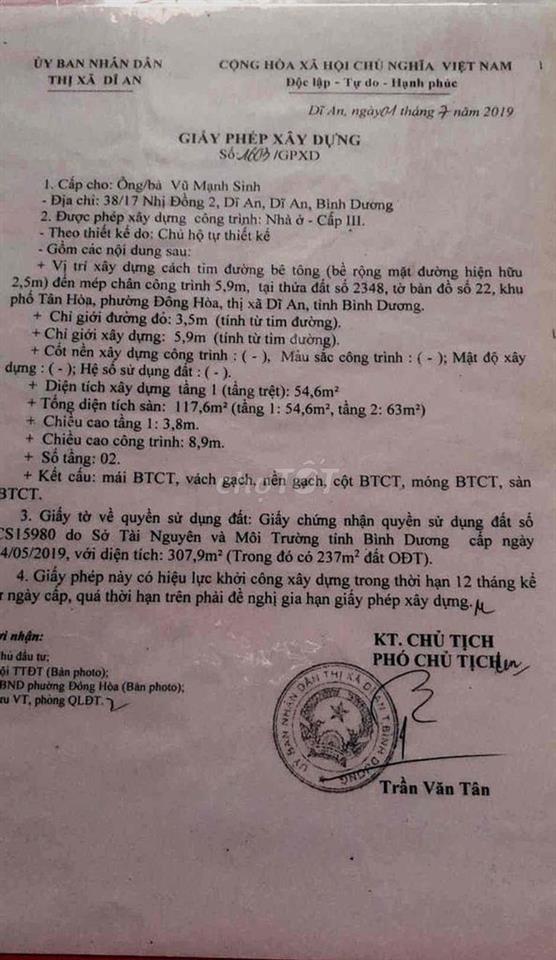 ỦY BAN NHÂN DÂN
THỊ XÃ DĨ AN
CỘNG HÒA XÃ HỘI CHỦ NGHĨA VIỆT NAM
Độc lập - Tự do - Hạnh phúc
Dĩ An, ngày 01 tháng 7 năm 2019
GIẤY PHÉP XÂY DỰNG
Số 1603/GPXD
1. Cấp cho: Ông/bà Vũ Mạnh Sinh
- Địa chỉ: 38/17 Nhị Đồng 2, Dĩ An, Dĩ An, Bình Dương
2. Được phép xây dựng công trình: Nhà ở - Cấp III.
- Theo thiết kế do: Chủ hộ tự thiết kế
- Gồm các nội dung sau:
+ Vị trí xây dựng cách tim đường bê tông (bề rộng mặt đường hiện hữu
2,5m) đến mép chân công trình 5,9m, tại thửa đất số 2348, tờ bản đồ số 22, khu
phố Tân Hòa, phường Đông Hòa, thị xã Dĩ An, tỉnh Bình Dương.
+ Chỉ giới đường đỏ: 3,5m (tính từ tim đường).
+ Chỉ giới xây dựng: 5,9m (tính từ tim đường).
+ Cốt nền xây dựng công trình : ( - ), Mầu sắc công trình : ( - ); Mật độ xây
dựng : ( - ); Hệ số sử dụng đất : ( - ).
+ Diện tích xây dựng tầng 1 (tầng trệt): 54,6m²
+ Tổng diện tích sàn: 117,6m² (tầng 1: 54,6m², tầng 2: 63m²)
+ Chiều cao tầng 1: 3,8m.
+ Chiều cao công trình: 8,9m.
+ Số tầng: 02.
+ Kết cấu: mái BTCT, vách gạch, nền gạch, cột BTCT, móng BTCT, sàn
BTCT.
chợTỐT
3. Giấy tờ về quyền sử dụng đất: Giấy chứng nhận quyền sử dụng đất số
CS15980 do Sở Tài Nguyên và Môi Trường tỉnh Bình Dương cấp ngày
4/05/2019, với diện tích: 307,9m² (Trong đó có 237m² đất OĐT).
4. Giấy phép này có hiệu lực khởi công xây dựng trong thời hạn 12 tháng kể
ngày cấp, quá thời hạn trên phải đề nghị gia hạn giấy phép xây dựng.
ơi nhận:
hủ đầu tư;
ội TTĐT (Bản photo);
BND phường Đông Hòa (Bản photo);
ưu VT, phòng QLĐT.
KT. CHỦ TỊCH
PHÓ CHỦ TỊCH
ỦY BAN NHÂN DÂN THỊ XÃ DĨ AN T.BÌNH DƯƠNG
Trần Văn Tân